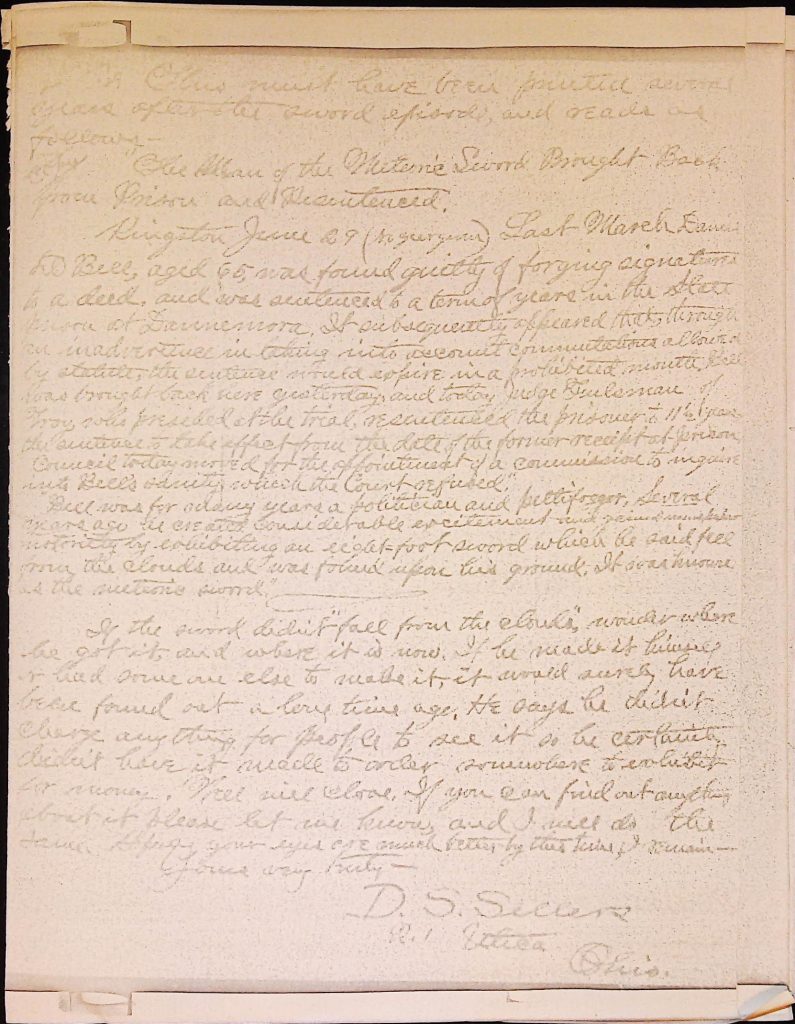 This must have been printed several
years after the sword episode, and reads as
follows—
"The Man of the Meteoric Sword Brought Back
from Prison and Resentenced.
Kingston June 29 Last March Daniel
D Bell, aged 65, was found guilty of forging signatures
to a deed, and was sentenced to a term of years in the State
prison at Dannemora. It subsequently appeared that, through
an inadvertence in taking into account commutations allowed
by statute, the sentence would expire in a prohibited month. Bell
was brought back here yesterday, and today Judge of
Troy, who presided at the trial, resentenced the prisoner to 11½ years
the sentence to take effect from the date of the former receipt at prison.
Council today moved for the appointment of a commission to inquire
into Bell's sanity, which the Court refused."
"Bell was for many years a politician and pettifogger. Several
years ago he created considerable excitement and gained
notoriety by exhibiting an eight-foot sword which he said fell
from the clouds and was found upon his ground. It was known
as the meteoric sword."
If the sword didn't "fall from the clouds", wonder where
he got it, and where it is now. If he made it himself
or had some one else to make it, it would surely have
been found out a long time ago. He says he didn't
charge anything for people to see it so he certainly
didn't have it made to order somewhere to exhibit
for money. Well will close. If you can find out anything
about it please let me know, and I will do the
same. Hope your eyes are much better by this time, I remain—
Yours very truly—
D. S. Sellers
R.1 Utica
Ohio.